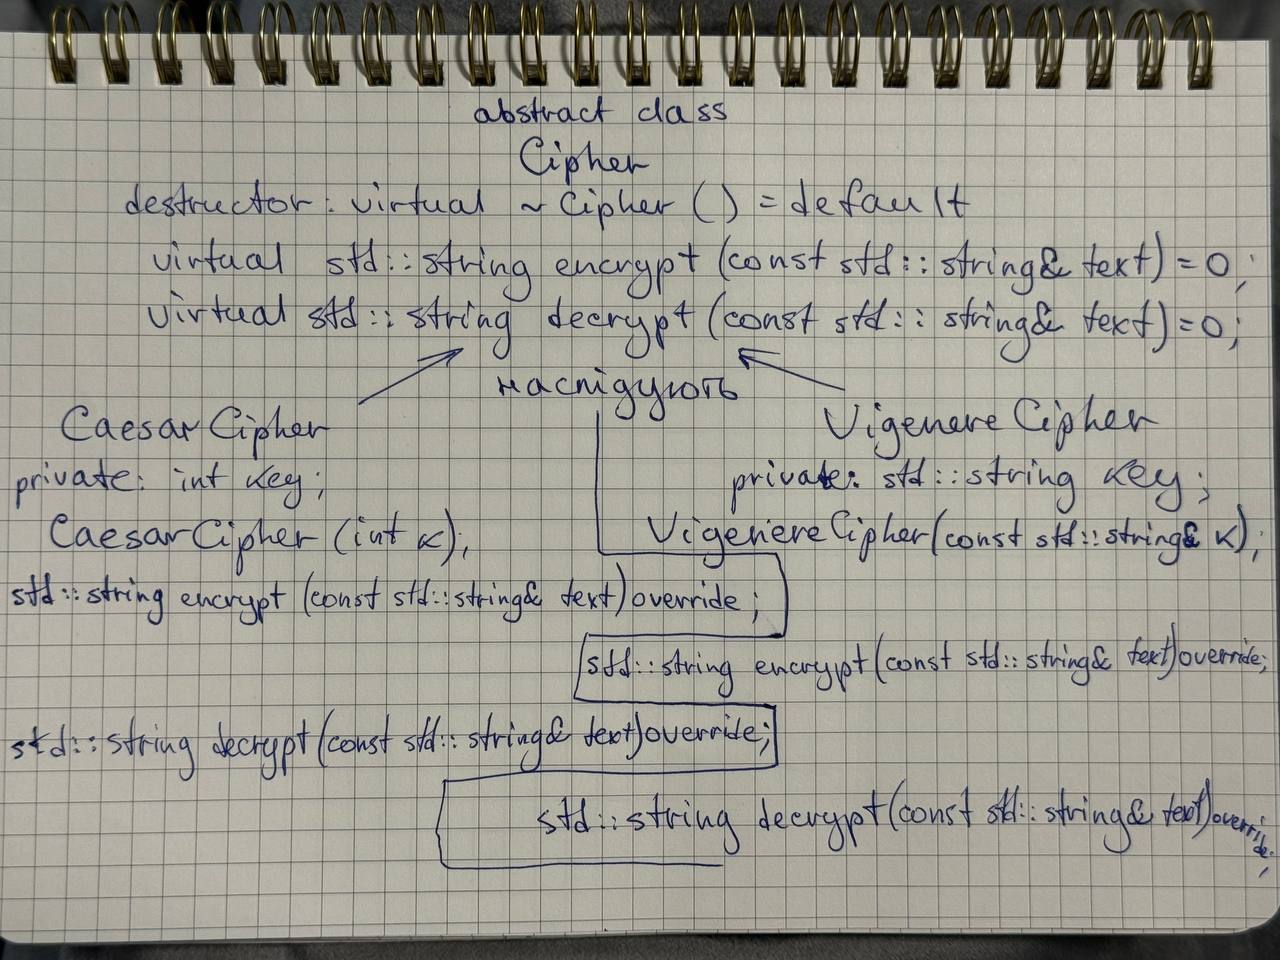 abstract class
Cipher
destructor: virtual ~Cipher () = default
virtual std::string encrypt (const std::string& text) = 0;
virtual std::string decrypt (const std::string& text) = 0;
наслідують
CaesarCipher
private: int key;
CaesarCipher (int k);
std::string encrypt (const std::string& text) override;
std::string decrypt (const std::string& text) override;
Vigenere Cipher
private: std::string key;
VigenereCipher (const std::string& k);
std::string encrypt (const std::string& text) override;
std::string decrypt (const std::string& text) override;